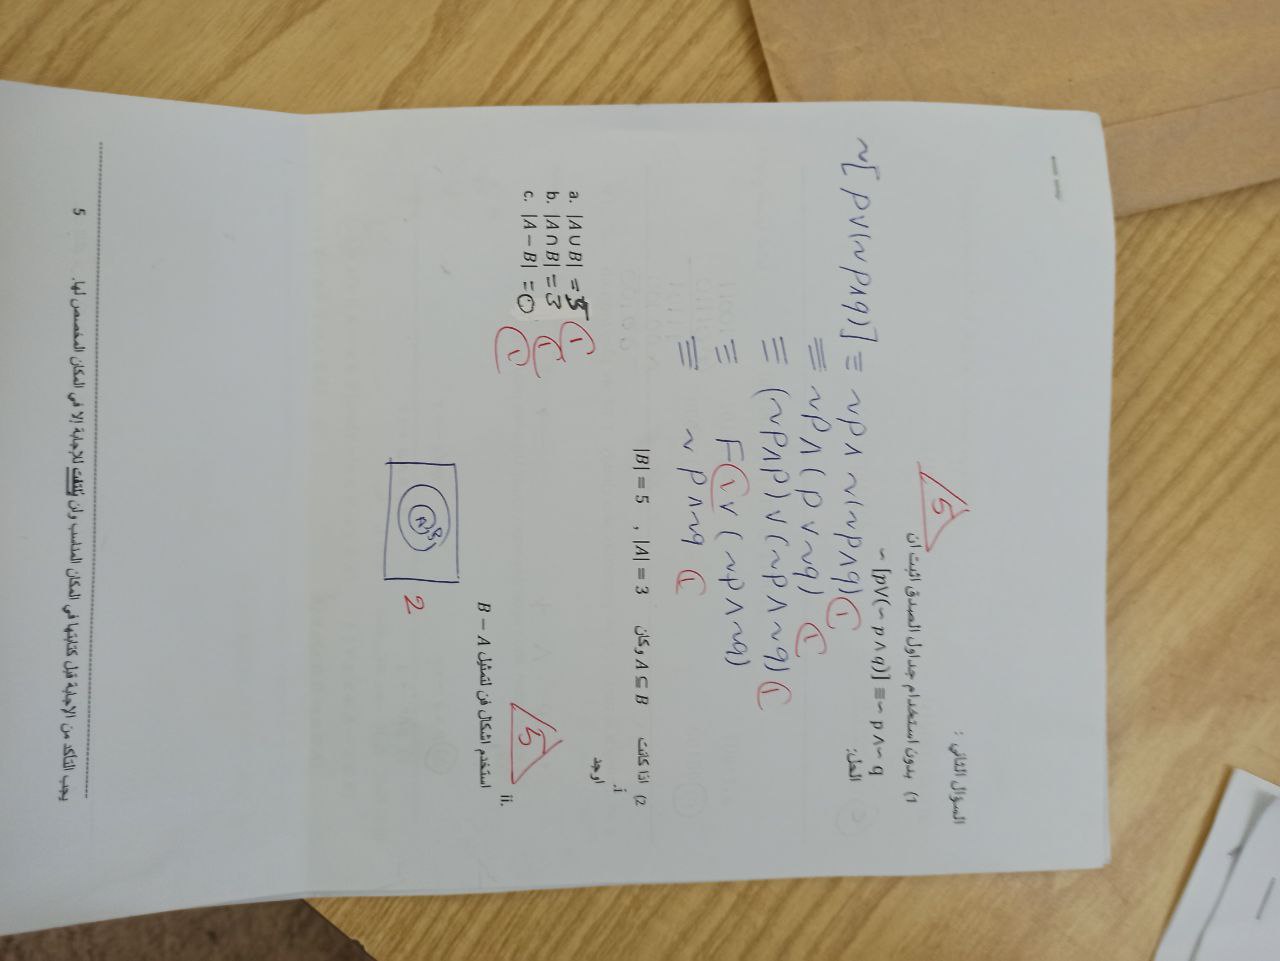 السؤال الثاني :
1) بدون استخدام جداول الصدق اثبت ان
~ [p∨(~ p ∧ q)] ≡~ p ∧ ~ q
5
الحل:
~[p∨(~p∧q)] ≡ ~p∧ ~(~p∧q) 1
≡ ~p∧(p∨~q) 1
≡ (~p∧p)∨(~p∧~q) 1
≡ F ∨ (~p∧~q) 1
≡ ~p∧~q 1
2) اذا كانت A ⊆ B وكان |B| = 5 , |A| = 3
i. اوجد
a. |A ∪ B| = 5 1
b. |A ∩ B| = 3 1
c. |A − B| = 0 1
5
ii. استخدم اشكال فن لتمثيل B − A
A B
2
يجب التأكد من الإجابة قبل كتابتها في المكان المناسب ولن يُلتفت للإجابة إلا في المكان المخصص لها.
5